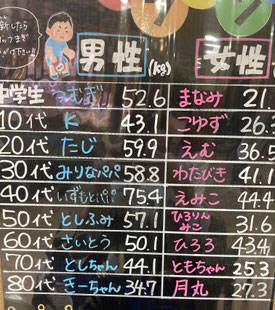 男性(kg) 女性
中学生 つむぎ 52.6 まなみ 21.
10代 K 43.1 こゆず 26.3
20代 たじ 59.9 えむ 36.5
30代 みりなパパ 58.8 わたびき 41.1
40代 いずもとパパ 75.4 えみこ 44.4
50代 としふみ 57.1 ひろりん みこ 31.6
60代 さいとう 50.1 ひろろ 43.4
70代 としちゃん 44.1 ともちゃん 25.3
80代 きーちゃん 34.7 月丸 27.3